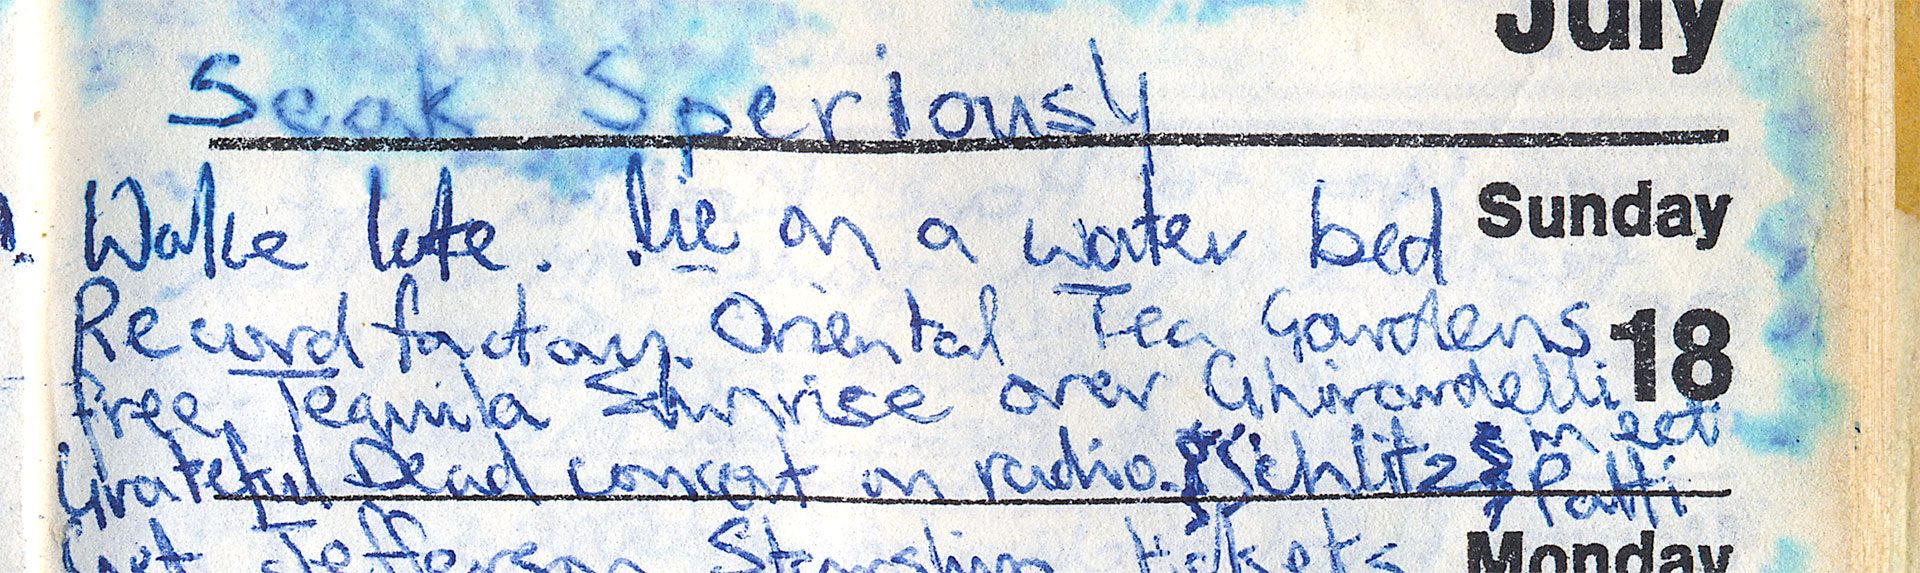 July
Seak Speriously
Wake late. lie on a water bed
Sunday
Record factory. Oriental Tea Gardens
18
free, Tequila Sunrise over Ghirardelli
meet
Grateful Dead concert on radio. Schlitz Patti
Get Jefferson Starship tickets
Monday